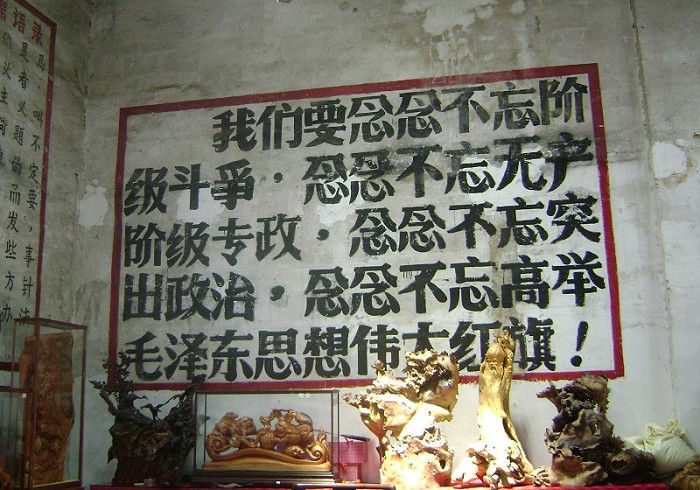 席语录
我们要念念不忘阶
级斗爭·念念不忘无产
阶级专政·念念不忘突
出政治·念念不忘高举
毛泽东思想伟大红旗！